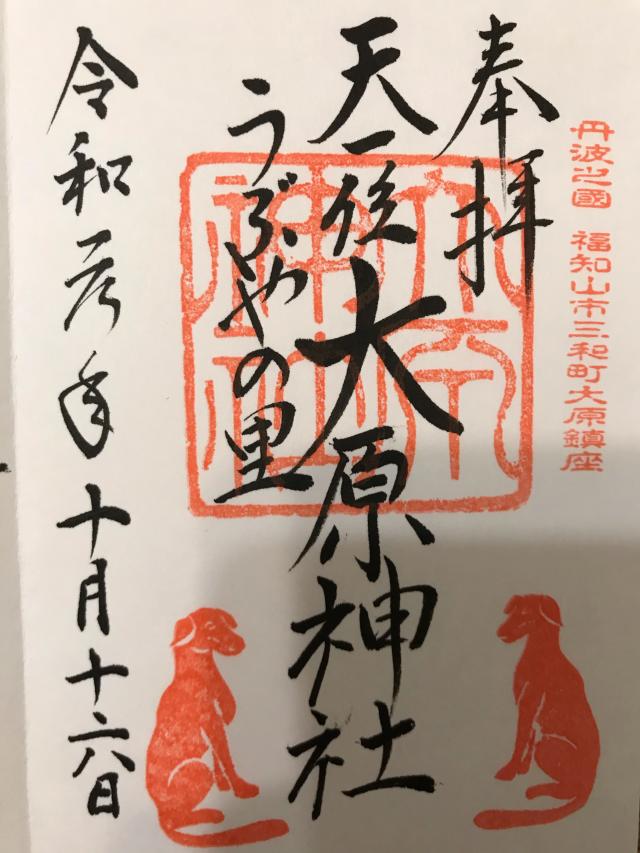 丹波之國 福知山市三和町大原鎮座
奉拝
天一位 大原神社
うぶやの里
令和元年十月十六日
大原神社